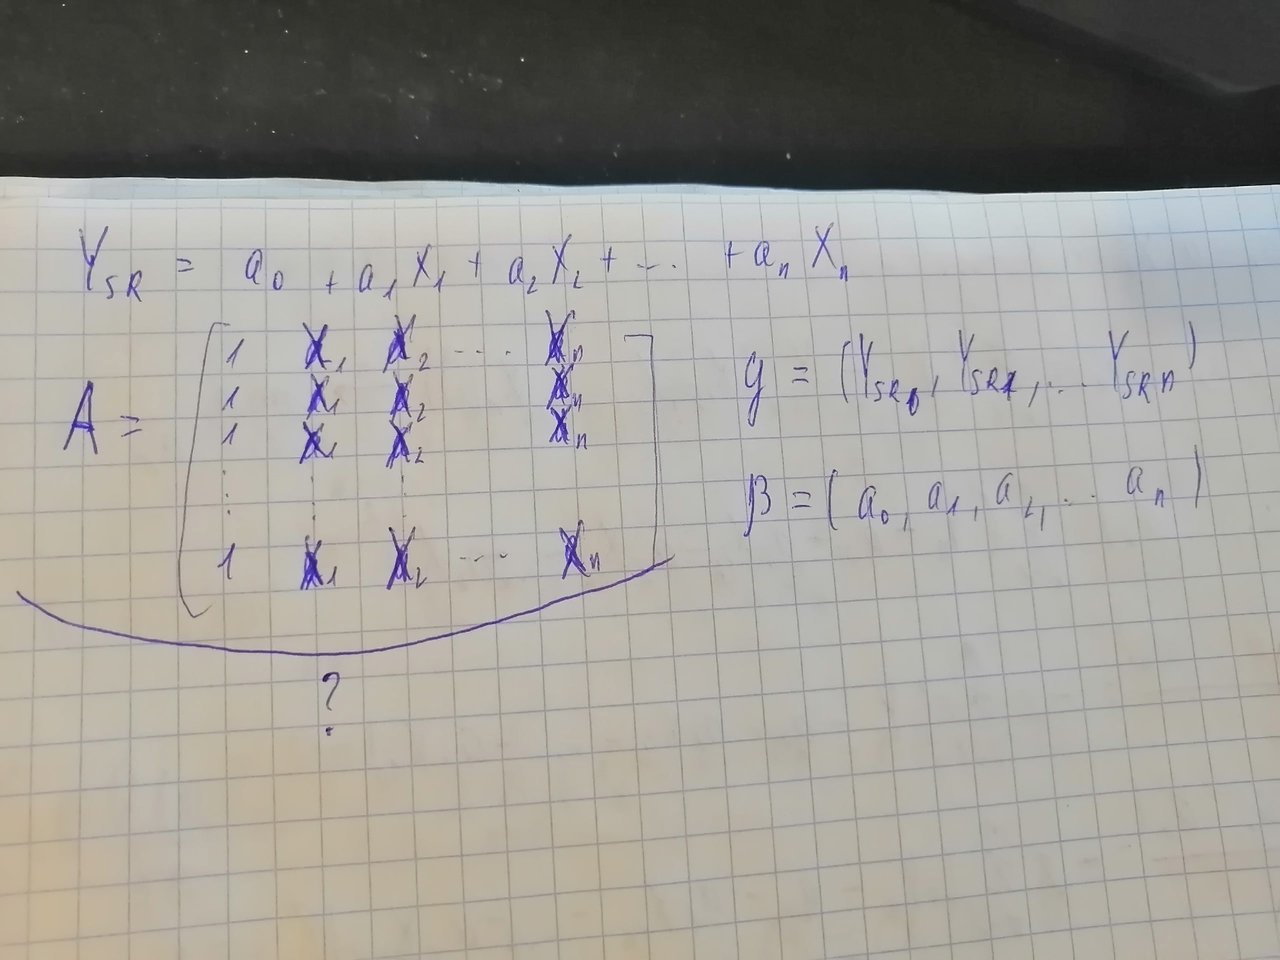 Y_SR = a_0 + a_1 X_1 + a_2 X_2 + ... + a_n X_n
1 X_1 X_2 ... X_n
A = 1 X_1 X_2 X_n
1 X_1 X_2 X_n
⋮ ⋮ ⋮
1 X_1 X_2 ... X_n
y = (Y_SR0, Y_SR1, ... Y_SRn)
β = (a_0, a_1, a_2, ... a_n)
?